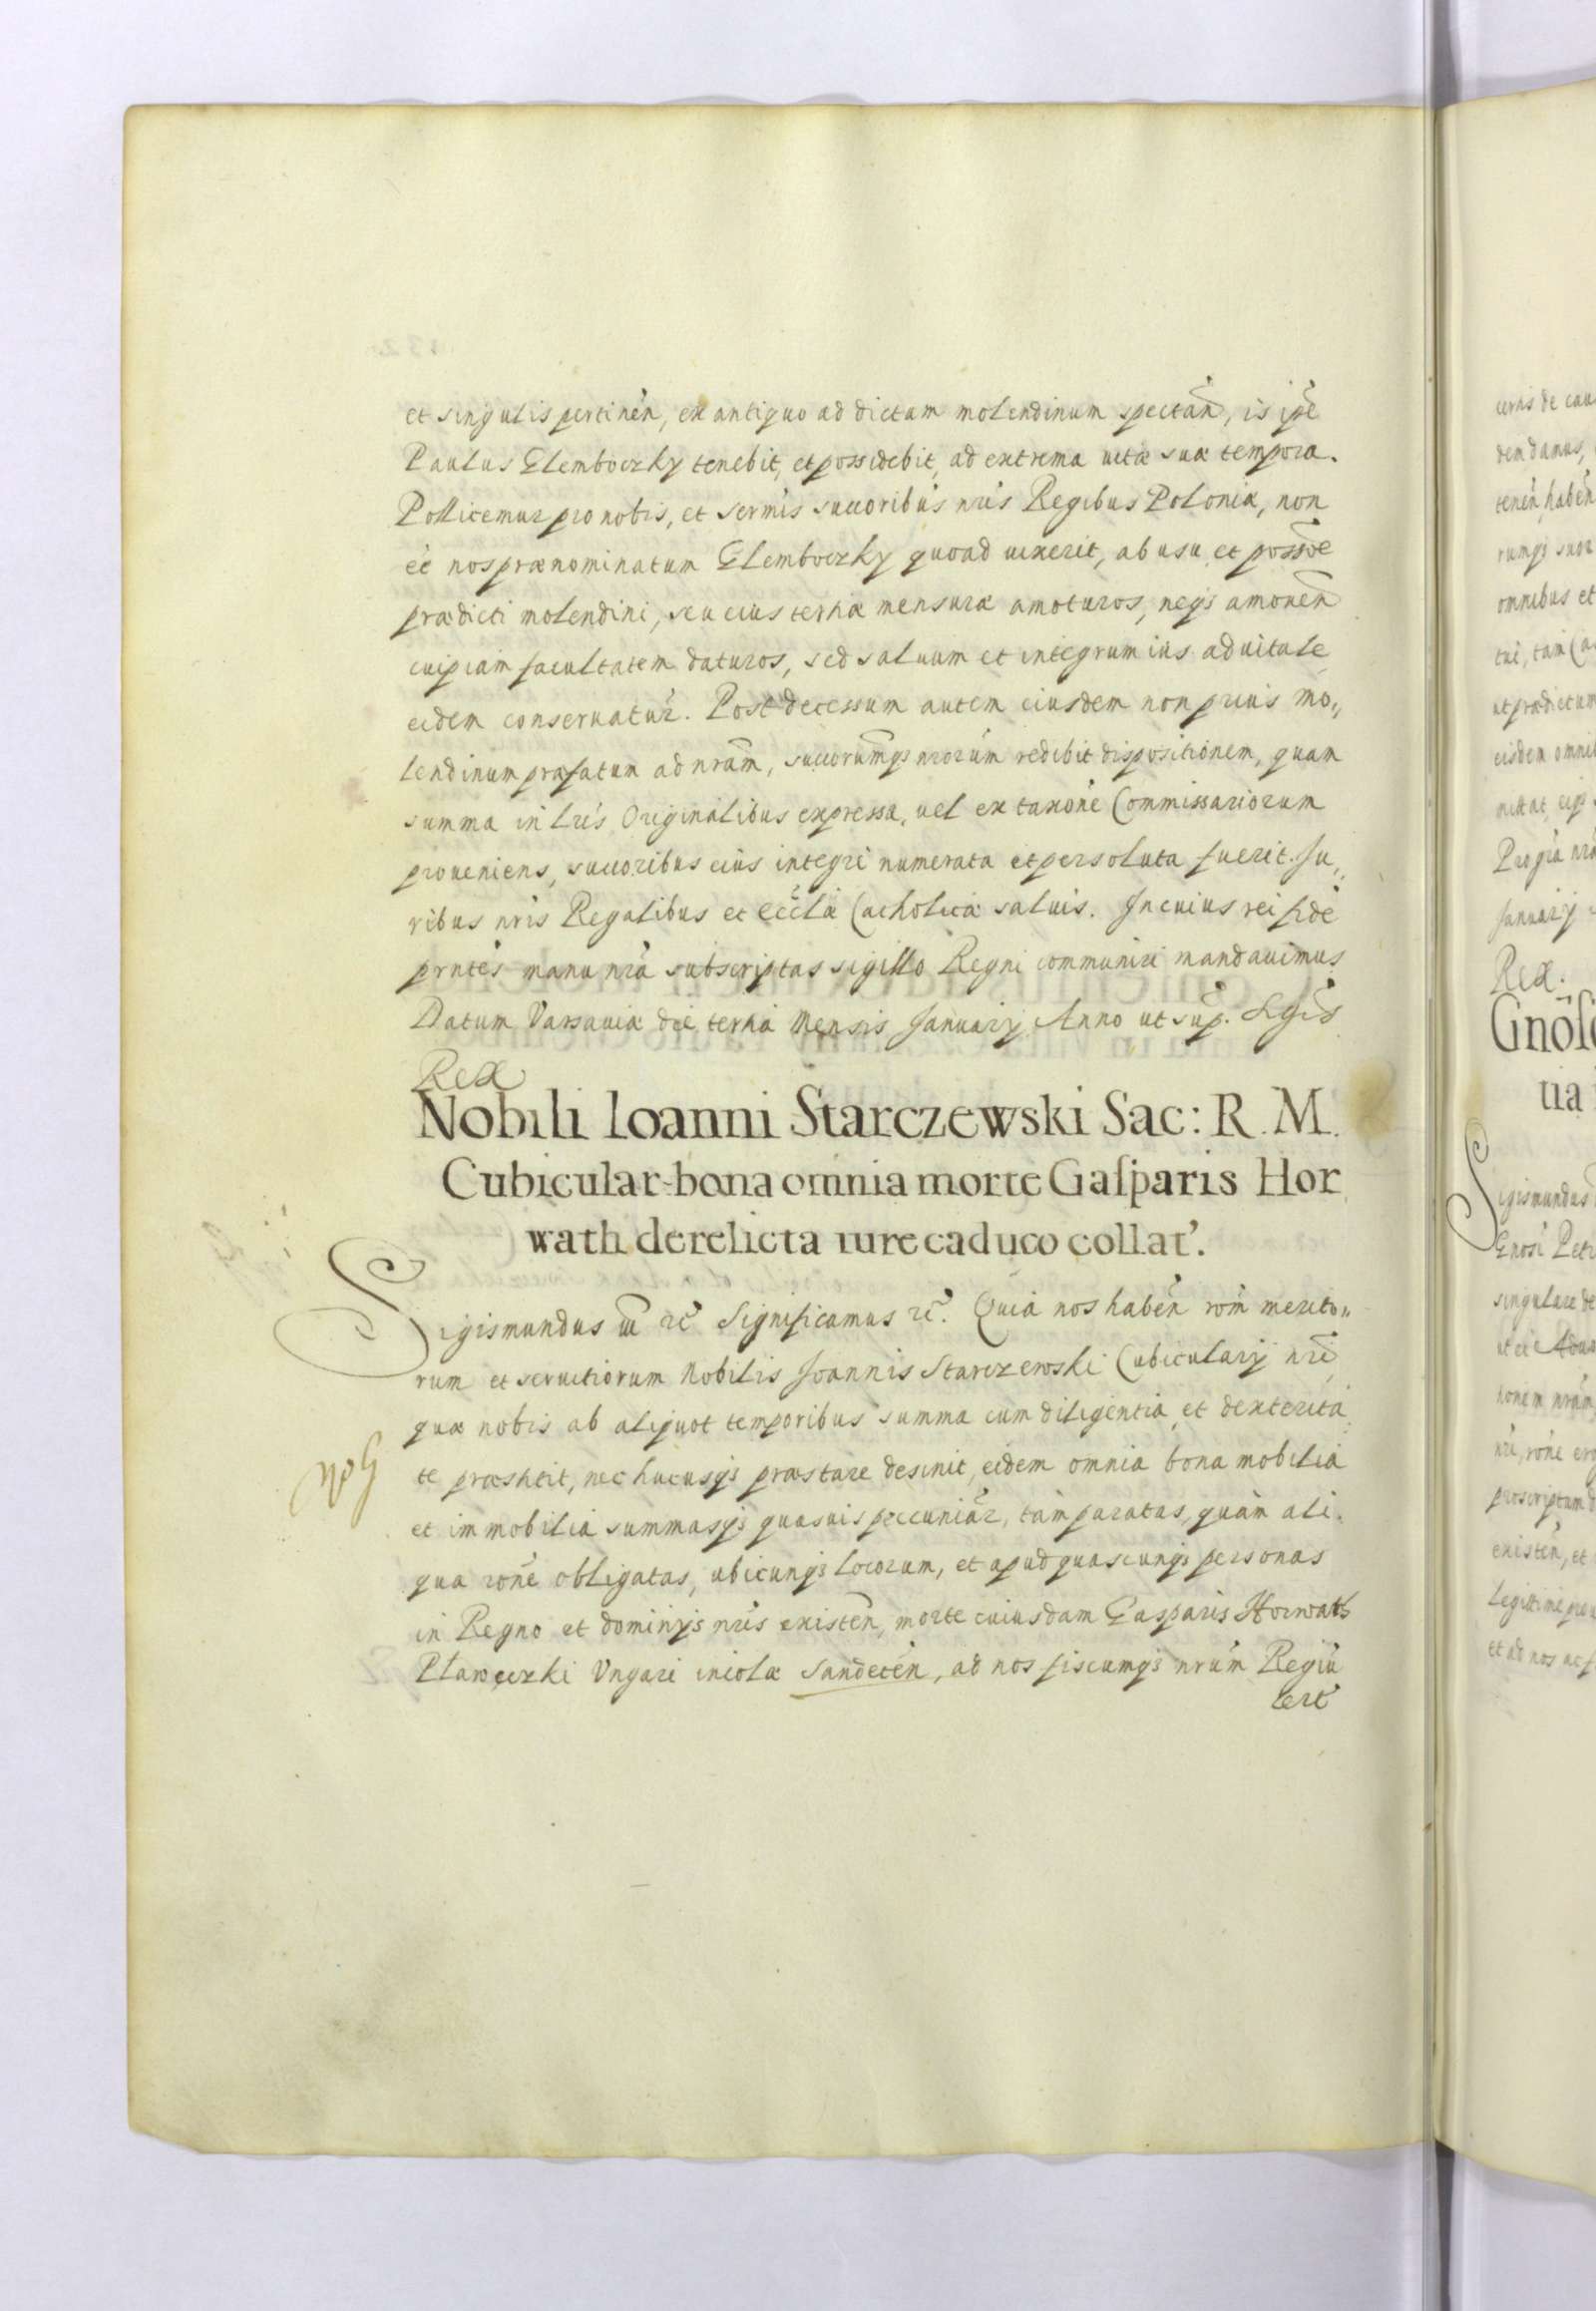 et singulis pertineñ, ex antiquo ad dictam molendinum spectañ, is ip̃e
Paulus Glemboczky tenebit, et possidebit, ad extrema uitæ suæ tempora.
Pollicemur pro nobis, et Serm̃is succoribus nr̃is Regibus Poloniæ, non
eẽ nos prænominatum Glemboczky quoad uixerit, ab usu et possoẽ
prædicti molendini, seu eius tertiæ mensuræ amoturos, neqз amoueñ
cuipiam facultatem daturos, sed saluum et integrum ius aduitale
eidem conseruatur̃. Post decessum autem eiusdem non prius mo„
lendinum præfatum ad nrãm, succorumqз nrorum redibit dispositionem, quam
summa in Lrĩs Originalibus expressa, uel ex taxone Commissariorum
proueniens, succoribus eius integri numerata et persoluta fuerit. Ju„
ribus nrĩs Regalibus et Eccl̃æ Catholicæ saluis. In cuius rei fidẽ
prñtes manu nrã subscriptas sigillo Regni communiri mandauimus
Datum Varsauiæ die tertia Mensis Januarij Anno ut sup̃. Sgis̃d
Rex
Nobili Ioanni Starczewski Sac: R. M.
Cubicular bona omnia morte Gasparis Hor
wath derelicta iure caduco collat'.
Sigismundus III etc̃ Significamus etc̃. Quia nos habeñ rom̃ merito„
rum et seruitiorum Nobilis Joannis Starczewski Cubicularij nrĩ,
quæ nobis ab aliquot temporibus summa cum diligentia, et dexterita
te præstitit, nec hucusqз præstare desinit, eidem omnia bona mobilia
et immobilia summasqз quasuis pecuniar̃, tam paratas, quàm ali„
qua ronẽ obligatas, ubicunqз locorum, et apud quascunqз personas
in Regno et dominijs nrĩs existeñ, morte cuiusdam Gasparis Horwath
Plawęczki Vngari incolæ Sandeceñ, ad nos fiscumqз nrũm Regiũ